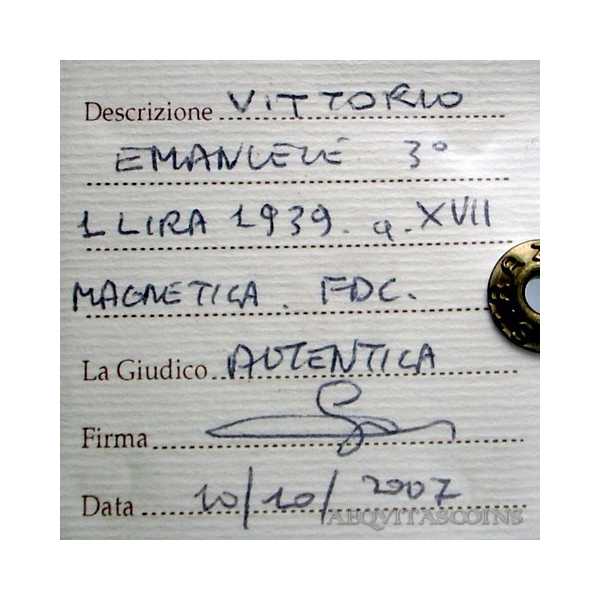 Descrizione VITTORIO
EMANUELE 3°
1 LIRA 1939. a. XVII
MAGNETICA. FDC.
La Giudico AUTENTICA
Firma
Data 10/10/2007
AEQVITASCOINS